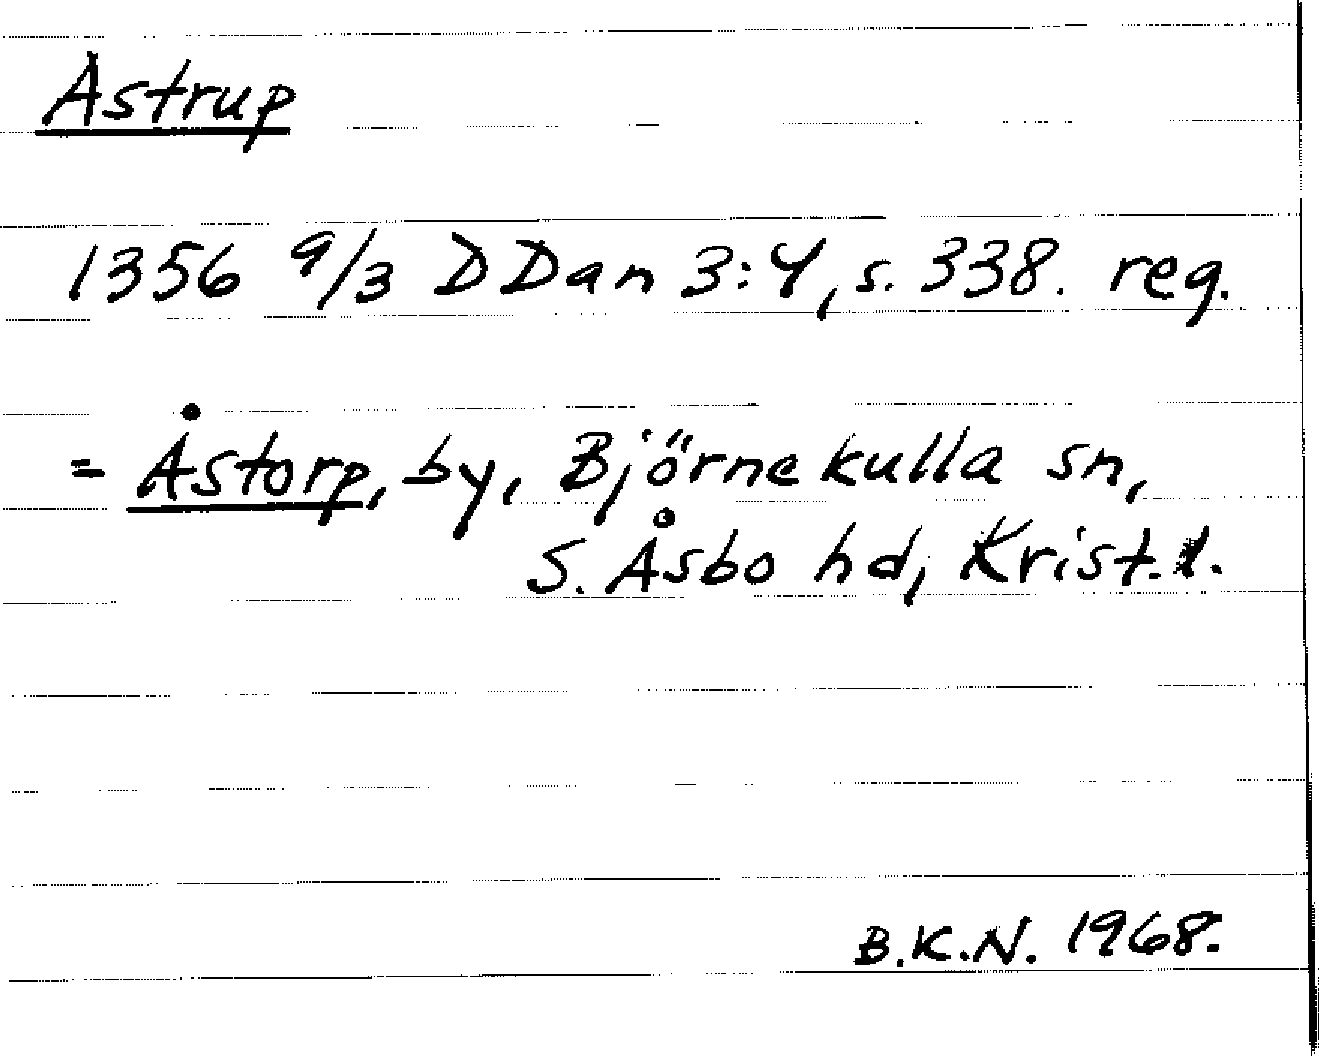 Astrup
1356 9/3 DDan 3:4, s. 338. reg.
= Åstorp, by, Björnekulla sn,
S. Åsbo hd, Krist. l.
B.K.N. 1968.